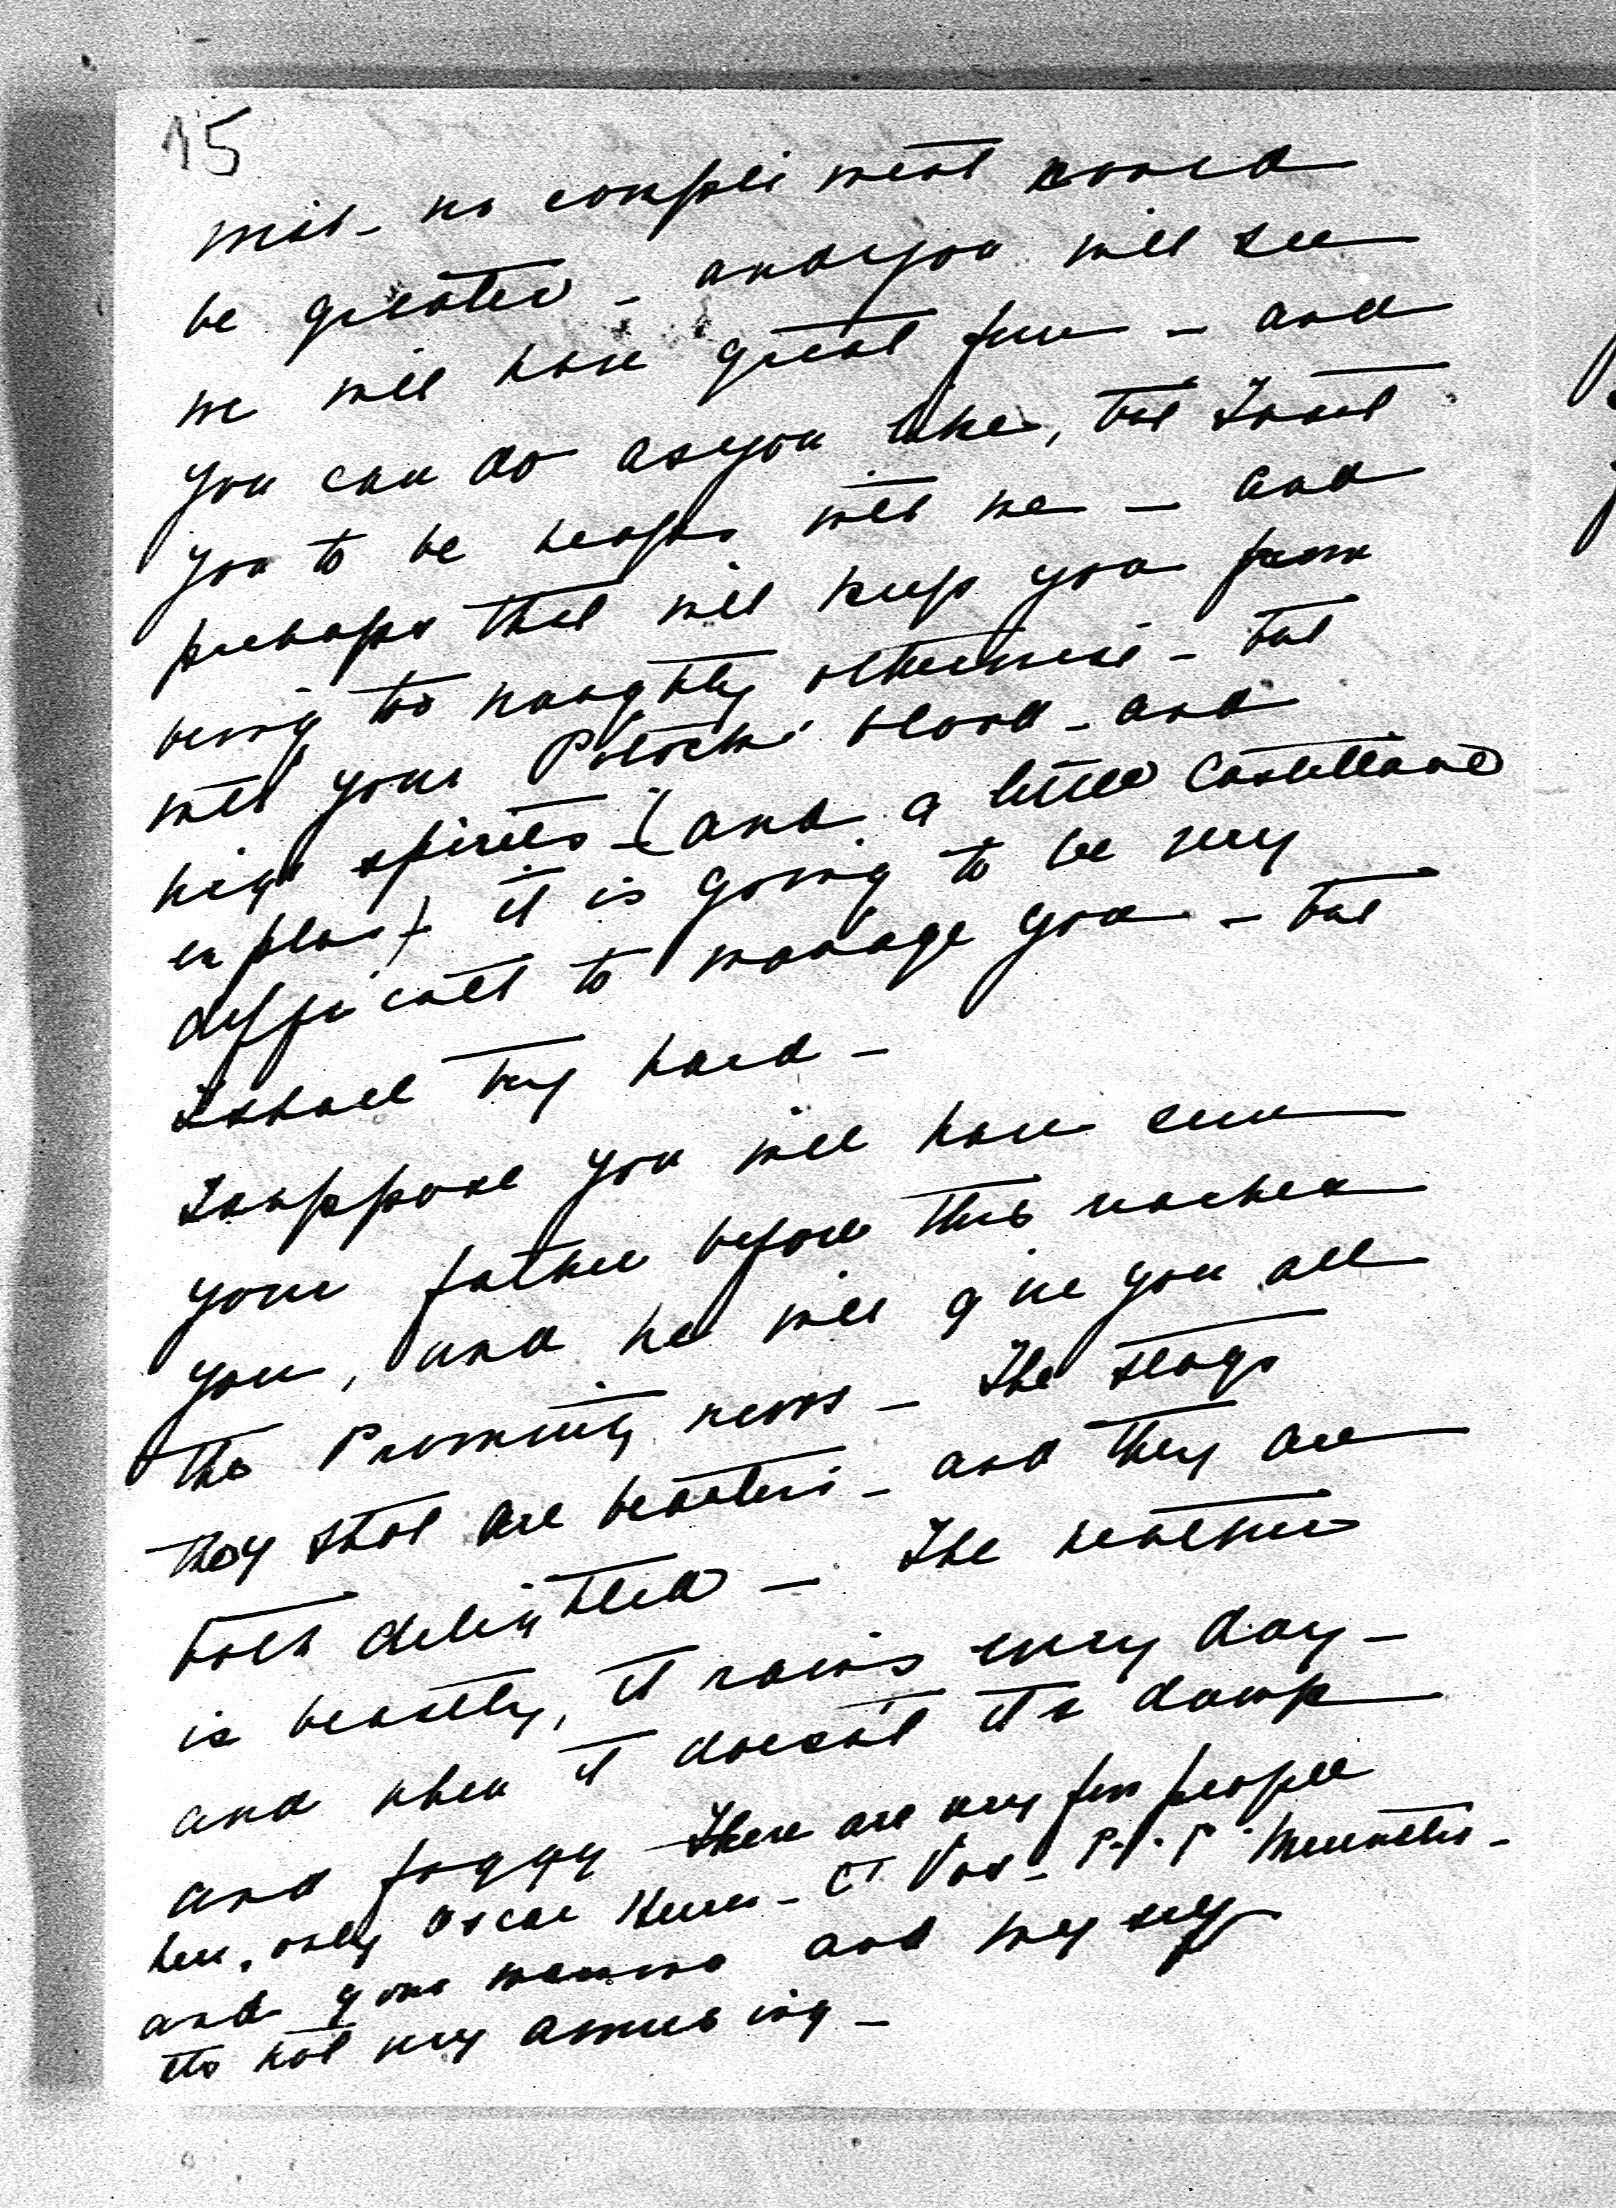 15
wish - no compliment could
be greater - and you will see
we will have great fun - and
you can do as you like, but I want
you to be happy with me - and
perhaps that will keep you from
being too naughty otherwise - but
with your Potocki blood - and
high spirits - (and a little Castellane
en plus) it is going to be very
difficult to manage you - but
I shall try hard -
I suppose you will have seen
your father before this reaches
you, and he will give you all
the news - The stags
they shot are beauties - and they are
both delighted - The weather
is beastly, it rains every day -
and when it doesn't it's damp
and foggy There are very few people
here, only Oscar - Ct
and your mamma and myself
its not very amusing -